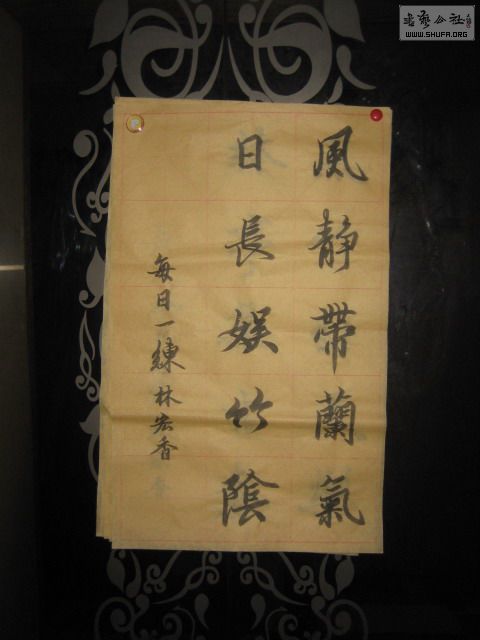 風静帶蘭氣
日長娱竹陰
每日一練 林宏香
書藝公社
WWW.SHUFA.ORG